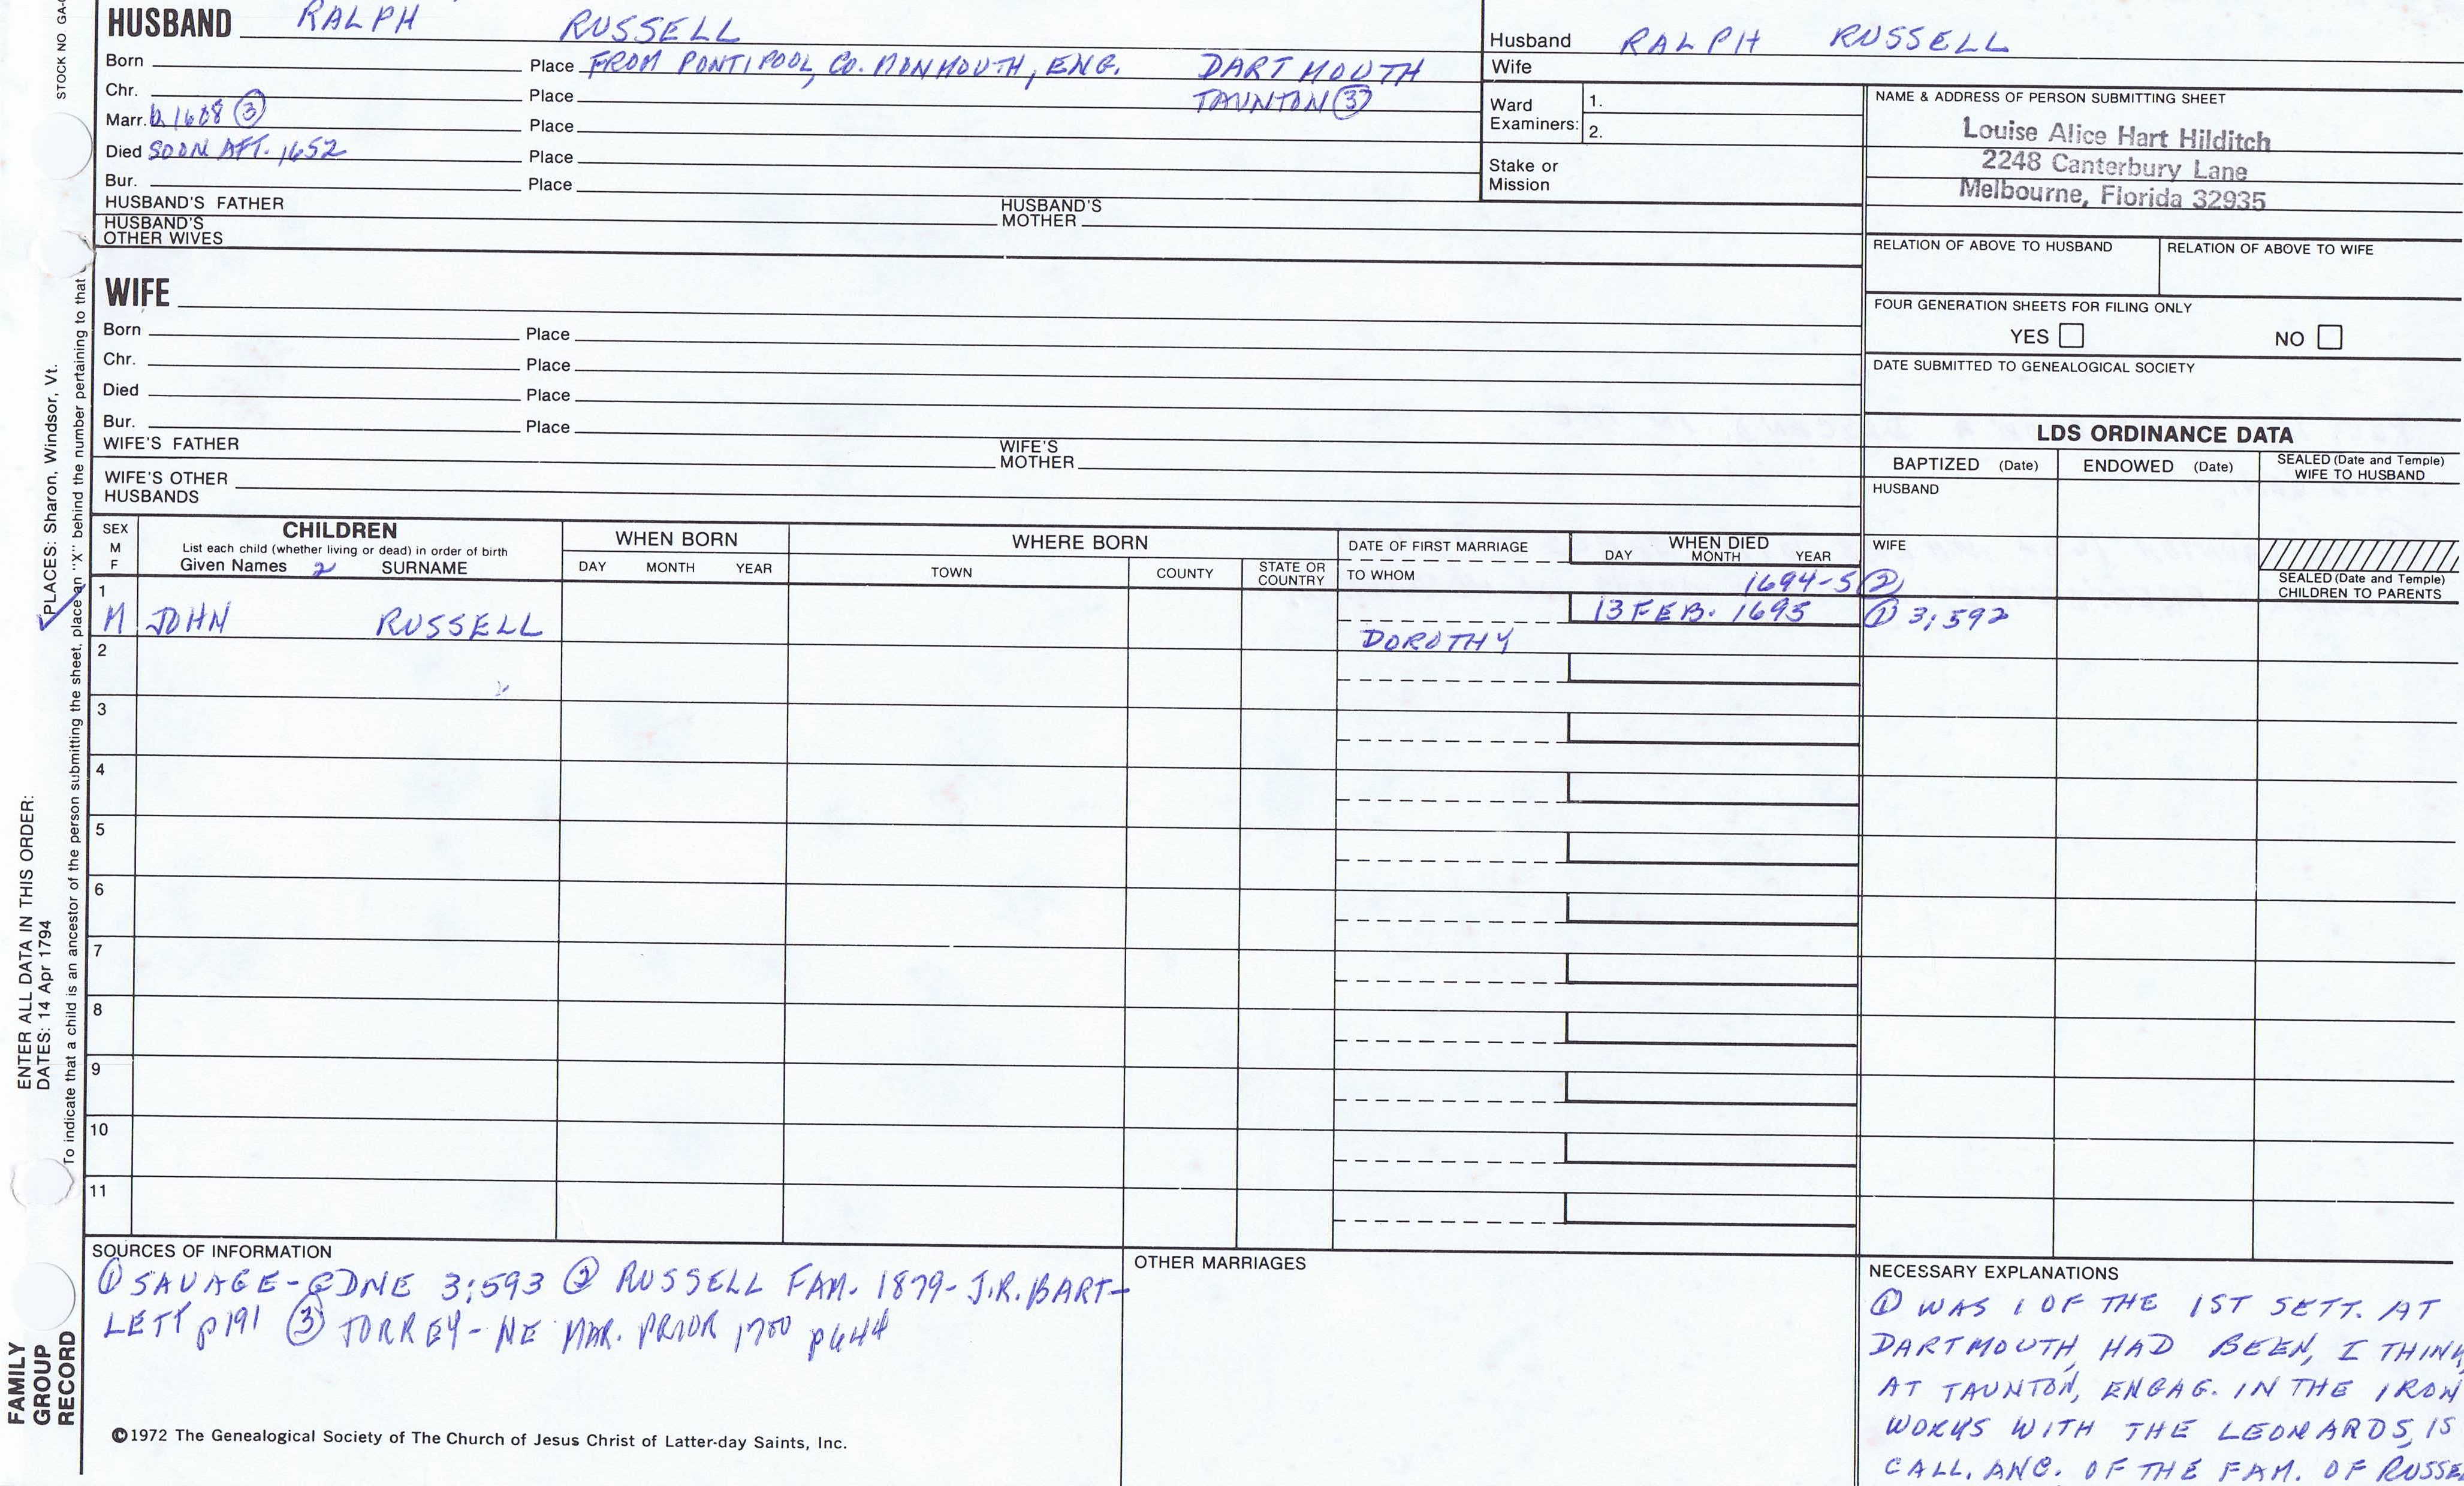 STOCK NO GA-
HUSBAND RALPH RUSSELL
Born Place FROM PONTIPOOL, CO. MONMOUTH, ENG. DARTMOUTH
Chr. Place TAUNTON ③
Marr. b 1608 ③ Place
Died SOON AFT. 1652 Place
Bur. Place
HUSBAND'S FATHER HUSBAND'S MOTHER
HUSBAND'S
OTHER WIVES
Husband RALPH RUSSELL
Wife
Ward
Examiners: 1.
2.
Stake or
Mission
NAME & ADDRESS OF PERSON SUBMITTING SHEET
Louise Alice Hart Hilditch
2248 Canterbury Lane
Melbourne, Florida 32935
RELATION OF ABOVE TO HUSBAND RELATION OF ABOVE TO WIFE
FOUR GENERATION SHEETS FOR FILING ONLY
YES NO
DATE SUBMITTED TO GENEALOGICAL SOCIETY
WIFE
Born Place
Chr. Place
Died Place
Bur. Place
WIFE'S FATHER WIFE'S MOTHER
WIFE'S OTHER
HUSBANDS
LDS ORDINANCE DATA
BAPTIZED (Date) ENDOWED (Date) SEALED (Date and Temple) WIFE TO HUSBAND
HUSBAND
WIFE
SEALED (Date and Temple)
CHILDREN TO PARENTS
SEX
M
F
CHILDREN
List each child (whether living or dead) in order of birth
Given Names 2 SURNAME
WHEN BORN
DAY MONTH YEAR
WHERE BORN
TOWN COUNTY STATE OR COUNTRY
DATE OF FIRST MARRIAGE
TO WHOM
WHEN DIED
DAY MONTH YEAR
1694-5 ②
1
M JOHN RUSSELL 13 FEB. 1695 ① 3;592
DOROTHY
2
3
4
5
6
7
8
9
10
11
SOURCES OF INFORMATION
① SAVAGE-GDNE 3;593 ② RUSSELL FAM. 1879- J.R. BART-
LETT p191 ③ TORREY- NE MAR. PRIOR 1700 p644
©1972 The Genealogical Society of The Church of Jesus Christ of Latter-day Saints, Inc.
OTHER MARRIAGES
NECESSARY EXPLANATIONS
① WAS 1 OF THE 1ST SETT. AT
DARTMOUTH, HAD BEEN, I THINK,
AT TAUNTON, ENGAG. IN THE IRON
WORKS WITH THE LEONARDS, IS
CALL. ANC. OF THE FAM. OF RUSSE
ENTER ALL DATA IN THIS ORDER:
DATES: 14 Apr 1794
PLACES: Sharon, Windsor, Vt.
To indicate that a child is an ancestor of the person submitting the sheet, place an "X" behind the number pertaining to that
FAMILY
GROUP
RECORD